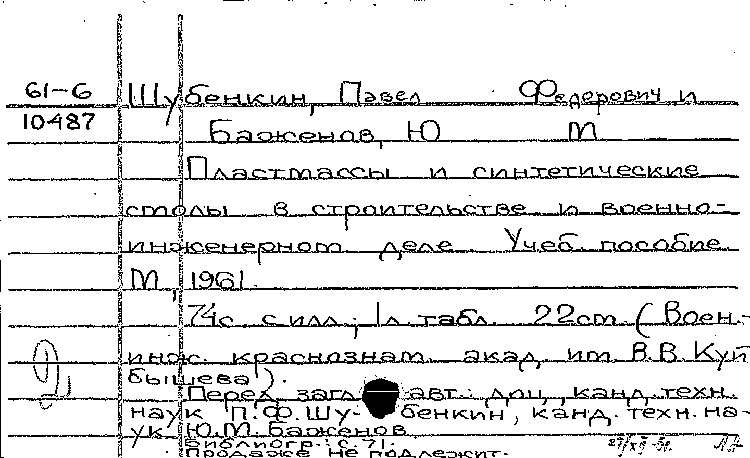 61-6
10487
Шубенкин, Павел Федорович и
Баженов, Ю М
Пластмассы и синтетические
смолы в строительстве и военно-
инженерном деле Учеб. пособие
М, 1961.
74с. с илл.; 1л. табл. 22см. (Воен.-
инж. краснознам. акад. им. В.В. Куй
бышева).
Перед загл. авт.: доц., канд. техн.
наук П.Ф. Шу- бенкин, канд. техн. на-
ук Ю.М. Баженов
Библиогр.: с. 71.
Продаже не подлежит.